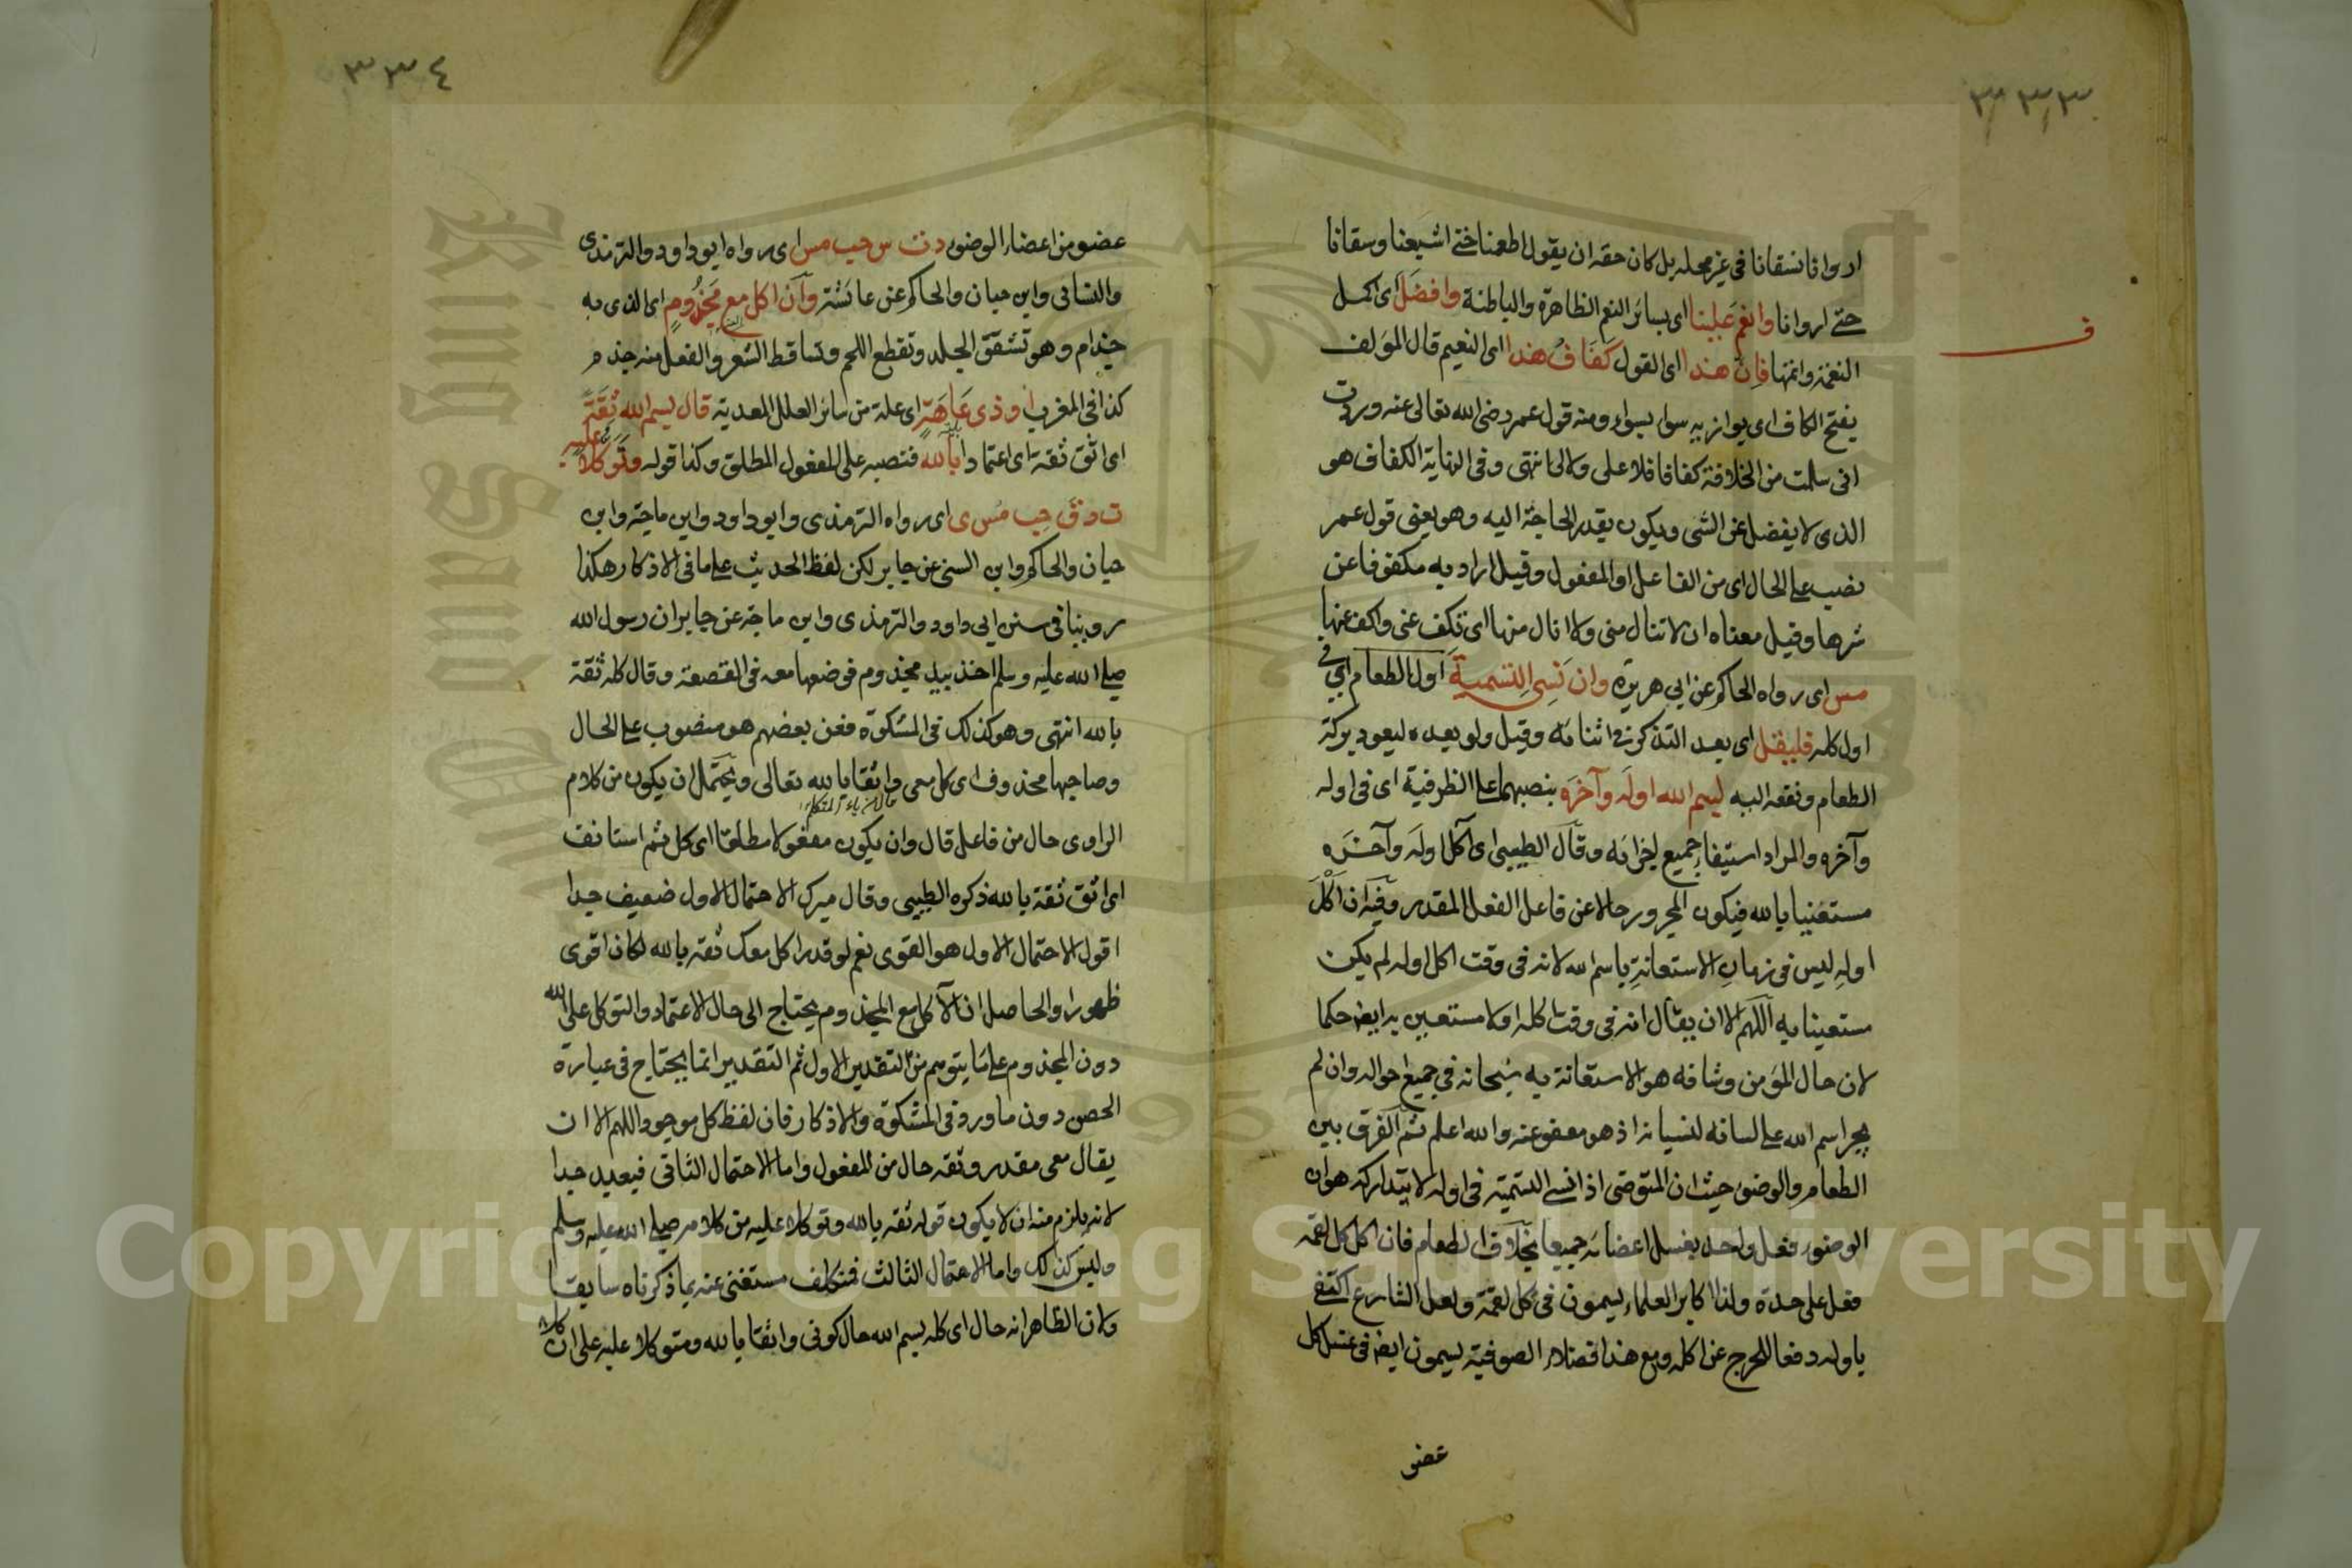 ٣٣٣
اروانا فسقانا فى غير محله بل كان حقه ان يقول اطعمنا حتى اشبعنا وسقانا
حتى اروانا وانعم علينا اى بسائر النعم الظاهرة والباطنة وافضل اى اكمل
النعمة واتمها فان هذا اى القول كفاف هذا اى النعيم قال المؤلف
ف
بفتح الكاف اى يوازيه سواء بسواء ومنه قول عمر رضى الله تعالى عنه وددت
انى سلمت من الخلافة كفافا فلا على ولا لى انتهى وفى النهاية الكفاف هو
الذى لا يفضل عن الشى ويكون بقدر الحاجة اليه وهو يعنى قول عمر
نصب على الحال اى من الفاعل او المفعول وقيل اراد به مكفوفا عن
شرها وقيل معناه ان لا تنال منى ولا انال منها اى تكف عنى واكف عنها
مس اى رواه الحاكم عن ابى هريرة وان نسى التسمية اول الطعام اى فى
اول كله فليقل اى بعد التذكر فى اثنائه وقيل ولو بعده ليعود بركة
الطعام ونفعه اليه بسم الله اوله وآخره بنصبهما على الظرفية اى فى اوله
وآخره والمراد استيفاء جميع اجزائه وقال الطيبى اى آكل اوله وآخره
مستعينا بالله فيكون المجرور حالا عن فاعل الفعل المقدر وفيه ان اكل
اوله ليس فى زمان الاستعانة باسم الله لانه فى وقت اكل اوله لم يكن
مستعينا به اللهم الا ان يقال انه فى وقت اكله اولا مستعين به ايضا حكما
لان حال المؤمن وشانه هو الاستعانة به سبحانه فى جميع احواله وان لم
يجر اسم الله على لسانه لنسيانه اذ هو معفو عنه والله اعلم ثم الفرق بين
الطعام والوضوء حيث ان المتوضى اذا نسى التسمية فى اوله لا يتداركه هو ان
الوضوء فعل واحد بغسل اعضائه جميعا بخلاف الطعام فان اكل كل لقمة
فعل على حدة ولذا اكابر العلماء يسمون فى كل لقمة ولعل الشارع اكتفى
باوله دفعا للحرج عن اكله ومع هذا فضلاء الصوفية يسمون ايضا فى غسل كل
عضو
٣٣٤
عضو من اعضاء الوضوء د ت س حب مس اى رواه ابو داود والترمذى
والنسائى وابن حبان والحاكم عن عائشة وان اكل مع مجذوم اى الذى به
جذام وهو تشقق الجلد وتقطع اللحم وتساقط الشعر والفعل منه جذم
كذا فى المغرب او ذى عاهة اى علة من سائر العلل المعدية قال بسم الله ثقة
اى اثق ثقة اى اعتمادا بالله فنصبه على المفعول المطلق وكذا قوله وتوكلا عليه
ت د ق حب مس ى اى رواه الترمذى وابو داود وابن ماجة وابن
حبان والحاكم وابن السنى عن جابر لكن لفظ الحديث على ما فى الاذكار هكذا
روينا فى سنن ابى داود والترمذى وابن ماجة عن جابر ان رسول الله
صلى الله عليه وسلم اخذ بيد مجذوم فوضعها معه فى القصعة وقال كل ثقة
بالله انتهى وهو كذلك فى المشكوة فعن بعضهم هو منصوب على الحال
وصاحبها محذوف اى كل معى واثقا بالله تعالى ويحتمل ان يكون من كلام
الراوى حال من فاعل قال وان يكون مفعولا مطلقا اى كل ثم استانف
اى اثق ثقة بالله ذكره الطيبى وقال ميرك الاحتمال الاول ضعيف جدا
اقول الاحتمال الاول هو القوى نعم لو قدر اكل معك ثقة بالله لكان اقوى
ظهورا والحاصل ان الآكل مع المجذوم يحتاج الى حال الاعتماد والتوكل على الله
دون المجذوم على ما يتوهم من التقدير الاول ثم التقدير انما يحتاج فى عبارة
الحصن دون ما ورد فى المشكوة والاذكار فان لفظ كل موجود اللهم الا ان
يقال معى مقدر وثقة حال من المفعول واما الاحتمال الثانى فبعيد جدا
لانه يلزم منه ان لا يكون قوله ثقة بالله وتوكلا عليه من كلامه صلى الله عليه وسلم
وليس كذلك واما الاحتمال الثالث فمتكلف مستغنى عنه بما ذكرناه سابقا
ولان الظاهر انه حال اى كله بسم الله حال كونى واثقا بالله ومتوكلا عليه على ان
Copyright © King Saud University
1957